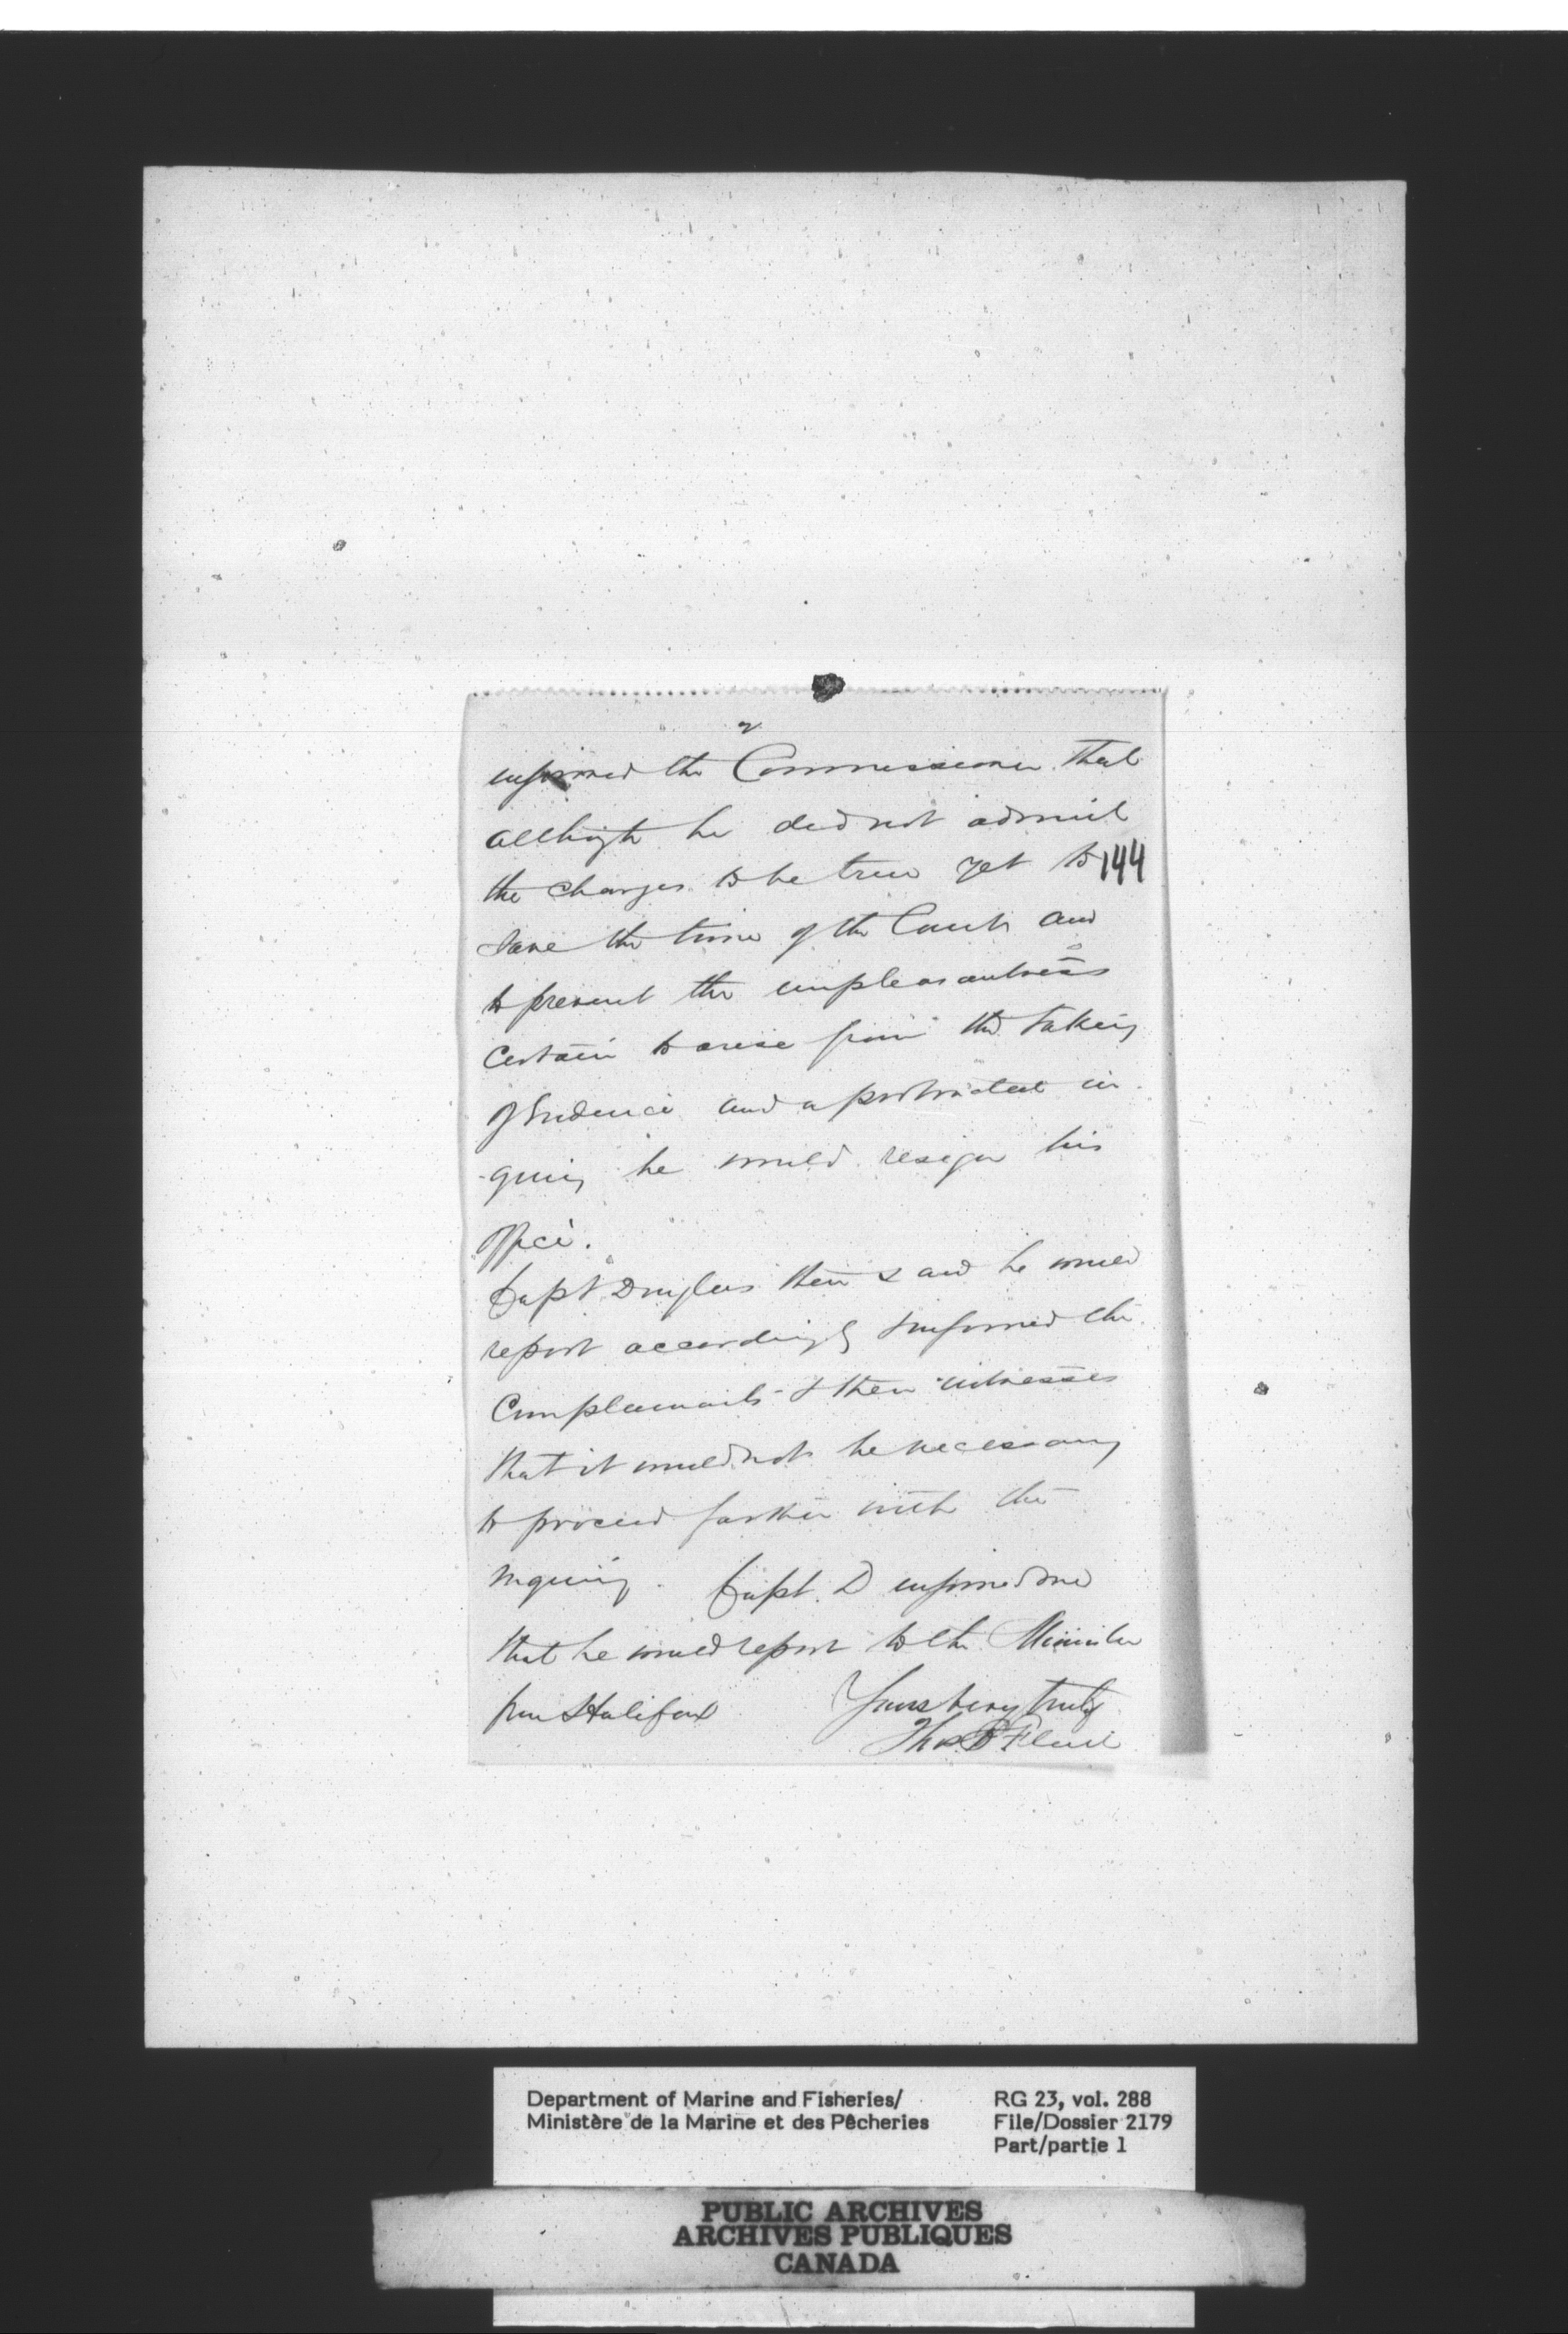 2
informed the Commissioner that
although he did not admit
the charges to be true yet to
144
save the time of the Court and
to prevent the unpleasantness
certain to arise from the taking
of Evidence and a protracted in
-quiry he would resign his
office.
Capt Douglas then said he would
report accordingly & informed the
Complainants & their witnesses
that it would not be necessary
to proceed further with the
inquiry. Capt. D informed me
that he would report to the Minister
from Halifax Yours very truly
Thos B Flint
Department of Marine and Fisheries/
Ministère de la Marine et des Pêcheries
RG 23, vol. 288
File/Dossier 2179
Part/partie 1
PUBLIC ARCHIVES
ARCHIVES PUBLIQUES
CANADA